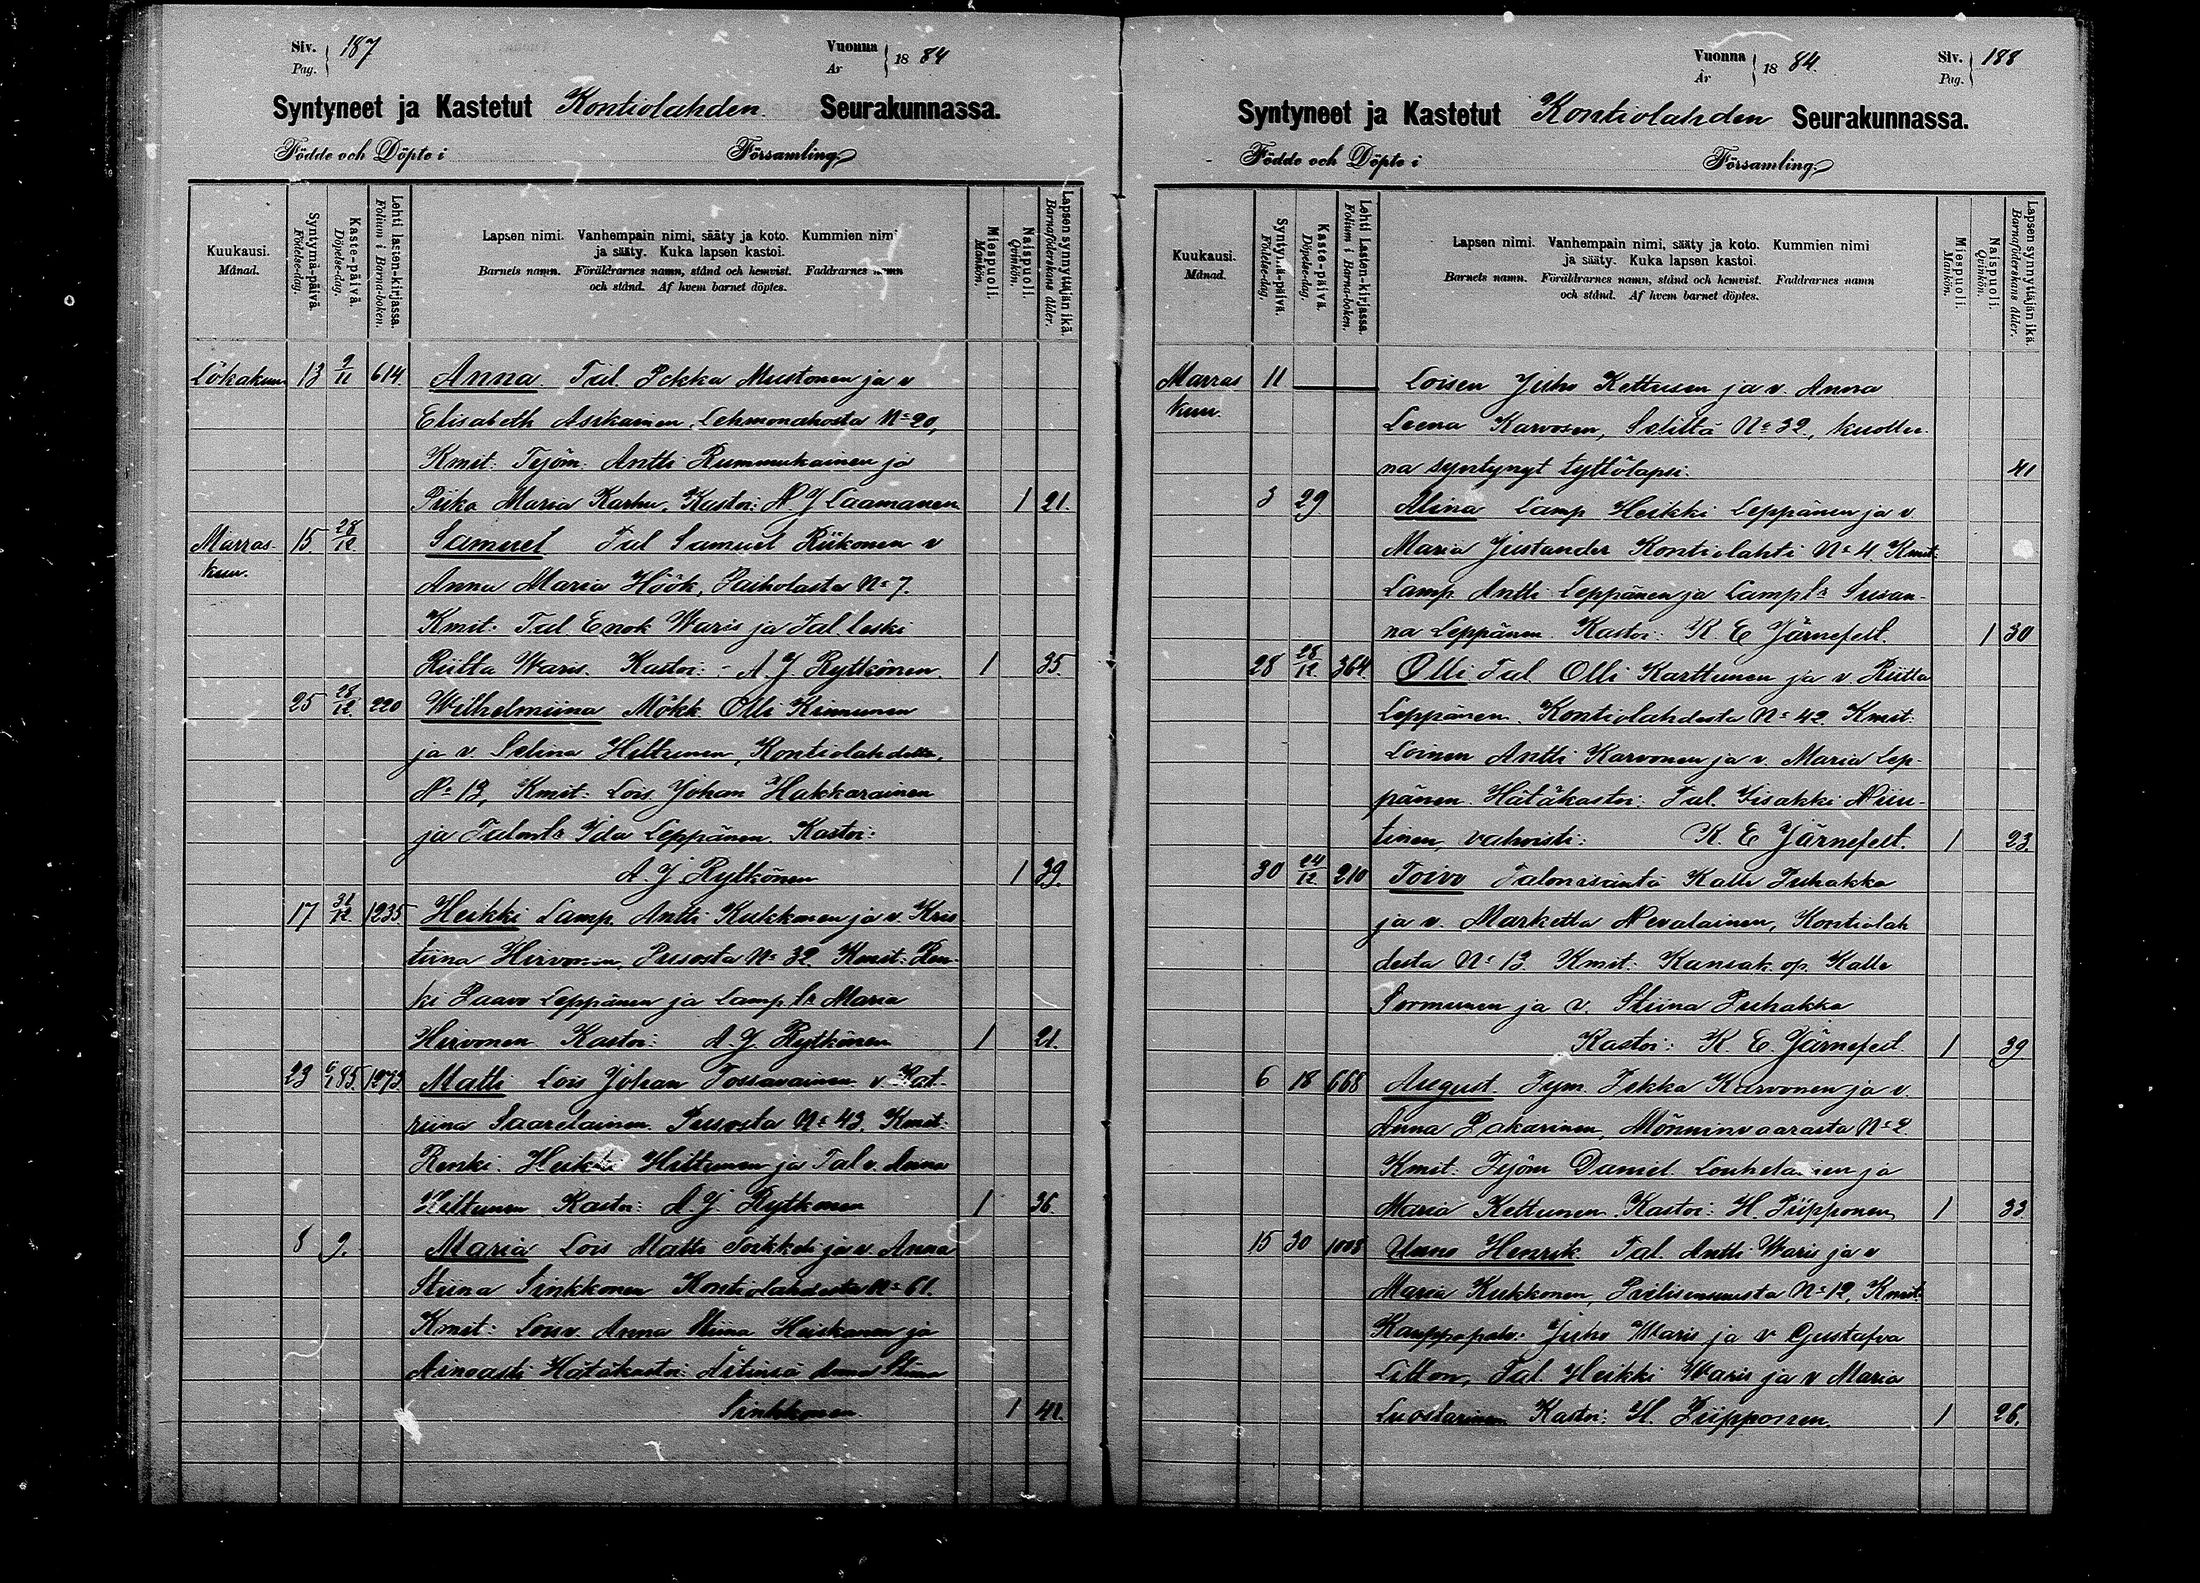 Siv. 187
Pag.
Vuonna 1884
År
Syntyneet ja Kastetut Kontiolahden Seurakunnassa.
Födde och Döpte i Församling
Kuukausi. Månad.
Syntymä-päivä. Födelse-dag.
Kaste-päivä. Döpelse-dag.
Lehti lasten-kirjassa. Folium i Barna-boken.
Lapsen nimi. Vanhempain nimi, sääty ja koto. Kummien nimi
ja sääty. Kuka lapsen kastoi.
Barnets namn. Föräldrarnes namn, stånd och hemvist. Faddrarnes namn
och stånd. Af hvem barnet döptes.
Miespuoli. Mankön.
Naispuoli. Qvinkön.
Lapsen synnyttäjän ikä. Barnaföderskans ålder.
Lokakuu 13 9/11 614 Anna Tal. Pekka Mustonen ja v
Elisabeth Asikainen, Lehmonahosta No 20,
Kmit: Tejöm. Antti Rummukainen ja
Piika Maria Karhu. Kastoi: N J Laamanen 1 21.
Marras- 15. 28/12 Samuel Tal Samuel Riikonen v
kuu. Anna Maria Höök, Paiholasta No 7.
Kmit: Tal. Enok Waris ja Tal. leski
Riitta Waris. Kastoi: A. J. Rytkönen. 1 35.
25 28/12 220 Wilhelmiina Mökk. Olli Kinnunen
ja v. Selina Hiltunen, Kontiolahdelta,
No 13, Kmit: Lois Johan Hakkarainen
ja Talontr Ida Leppänen. Kastoi:
A. J. Rytkönen 1 39.
17 31/12 1235 Heikki Lamp. Antti Kukkonen ja v. Kris
tiina Hirvonen, Pusosta No 32. Kmit: Ren-
ki Paavo Leppänen ja Lamp tr Maria
Hirvonen Kastoi: A. J. Rytkönen 1 21.
23 6/1 85. 1273 Matti Lois Johan Tossavainen v Kat-
riina Saarelainen Pusosta No 43. Kmit:
Renki Heikki Hiltunen ja Tal v. Anna
Hiltunen Kastoi: A. J. Rytkönen 1 36.
8 9. Maria Lois Matti Toikkeli ja v. Anna
Stiina Sinkkonen Kontiolahdesta No 61.
Kmit: Lois v. Anna Stiina Heiskanen ja
Ainoasti Hätäkastoi: Äitinsä Anna Stiina
Sinkkonen. 1 41.
Vuonna 1884.
År
Siv. 188
Pag.
Syntyneet ja Kastetut Kontiolahden Seurakunnassa.
Födde och Döpte i Församling
Kuukausi. Månad.
Syntymä-päivä. Födelse-dag.
Kaste-päivä. Döpelse-dag.
Lehti Lasten-kirjassa. Folium i Barna-boken.
Lapsen nimi. Vanhempain nimi, sääty ja koto. Kummien nimi
ja sääty. Kuka lapsen kastoi.
Barnets namn. Föräldrarnes namn, stånd och hemvist. Faddrarnes namn
och stånd. Af hvem barnet döptes.
Miespuoli. Mankön.
Naispuoli. Qvinkön.
Lapsen synnyttäjän ikä. Barnaföderskans ålder.
Marras 11 Loisen Juho Kettusen ja v. Anna
kuu. Leena Karvosen, Seliltä No 32, kuollee-
na syntynyt tyttölapsi. 41
3 29 Alina Lamp Heikki Leppänen ja v
Maria Justander Kontiolahti No 4 Kmit:
Lamp. Antti Leppänen ja Lamp tr Susan-
na Leppänen. Kastoi: K E Järnefelt. 1 30
28 28/12 364 Olli Tal. Olli Karttunen ja v. Riitta
Leppänen. Kontiolahdesta No 42 Kmit:
Loinen Antti Karvonen ja v. Maria Lep-
pänen. Hätäkastoi: Tal. Iisakki Niiu-
tinen, vahvisti: K. E Järnefelt. 1 23
30 24/12 210 Toivo Talonisäntä Kalle Puhakka
ja v. Marketta Nevalainen, Kontiolah
desta No 13. Kmit: Kansak. op. Kalle
Sormunen ja v. Stiina Puhakka
Kastoi: K. E. Järnefelt 1 39
6 18 668 August Tym. Pekka Karvonen ja v.
Anna Pakarinen, Mönninvaarasta No 2
Kmit: Tejöm Daniel Louhelainen ja
Maria Kettunen. Kastoi: H. Piipponen 1 33
15 30 1008 Unno Henrik Tal. Antti Waris ja v
Maria Kukkonen, Pielisensuusta No 12, Kmit:
Kauppapalv: Juho Waris ja v Gustafva
Litton, Tal Heikki Waris ja v Maria
Luostarinen Kastoi: H. Piipponen. 1 26.